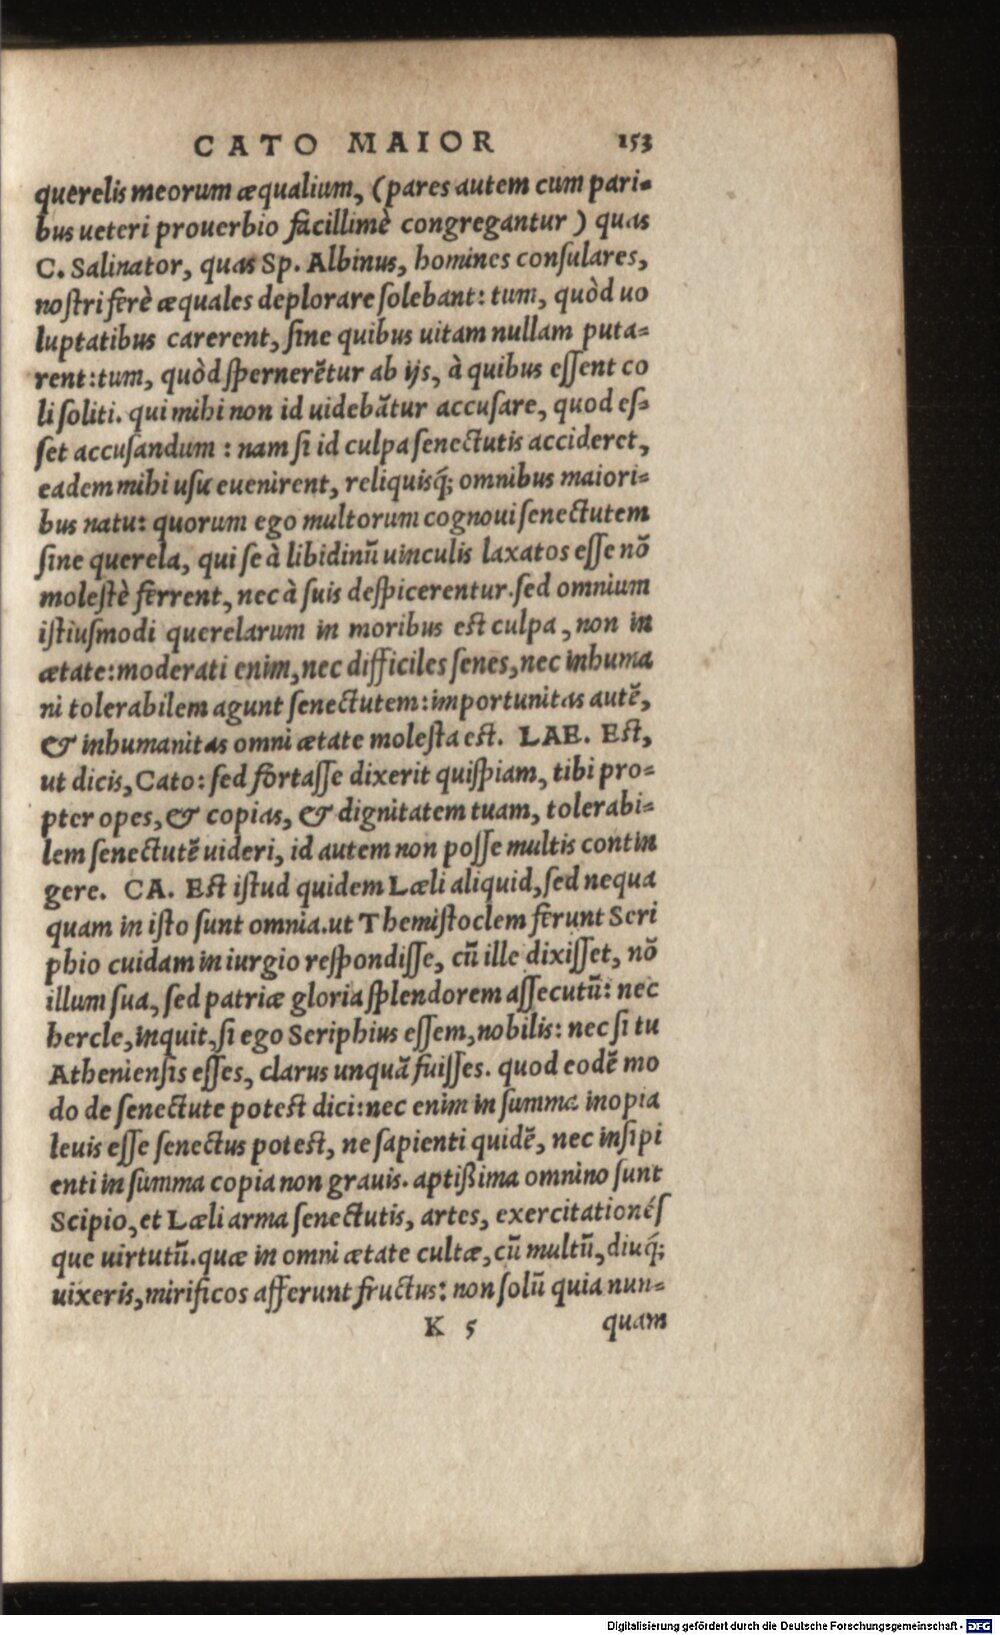 CATO MAIOR 153
querelis meorum æqualium, (pares autem cum pari-
bus ueteri prouerbio facillimè congregantur) quas
C. Salinator, quas Sp. Albinus, homines conſulares,
noſtri ferè æquales deplorare ſolebant: tum, quòd uo
luptatibus carerent, ſine quibus uitam nullam puta-
rent: tum, quòd ſpernerẽtur ab ijs, à quibus eſſent co
li ſoliti. qui mihi non id uidebãtur accuſare, quod eſ-
ſet accuſandum: nam ſi id culpa ſenectutis accideret,
eadem mihi uſu euenirent, reliquisq́; omnibus maiori-
bus natu: quorum ego multorum cognoui ſenectutem
ſine querela, qui ſe à libidinũ uinculis laxatos eſſe nõ
moleſtè ferrent, nec à ſuis deſpicerentur. ſed omnium
iſtiuſmodi querelarum in moribus eſt culpa, non in
ætate: moderati enim, nec difficiles ſenes, nec inhuma
ni tolerabilem agunt ſenectutem: importunitas autẽ,
& inhumanitas omni ætate moleſta eſt. LAE. Eſt,
ut dicis, Cato: ſed fortaſſe dixerit quiſpiam, tibi pro-
pter opes, & copias, & dignitatem tuam, tolerabi-
lem ſenectutẽ uideri, id autem non poſſe multis contin
gere. CA. Eſt iſtud quidem Læli aliquid, ſed nequa
quam in iſto ſunt omnia. ut Themiſtoclem ferunt Seri
phio cuidam in iurgio reſpondiſſe, cũ ille dixiſſet, nõ
illum ſua, ſed patriæ gloria ſplendorem aſſecutũ: nec
hercle, inquit, ſi ego Seriphius eſſem, nobilis: nec ſi tu
Athenienſis eſſes, clarus unquã fuiſſes. quod eodẽ mo
do de ſenectute poteſt dici: nec enim in ſumma inopia
leuis eſſe ſenectus poteſt, ne ſapienti quidẽ, nec inſipi
enti in ſumma copia non grauis. aptißima omnino ſunt
Scipio, et Læli arma ſenectutis, artes, exercitationéſ
que uirtutũ. quæ in omni ætate cultæ, cũ multũ, diuq́;
uixeris, mirificos afferunt fructus: non ſolũ quia nun-
K 5 quam
Digitalisierung gefördert durch die Deutsche Forschungsgemeinschaft - DFG